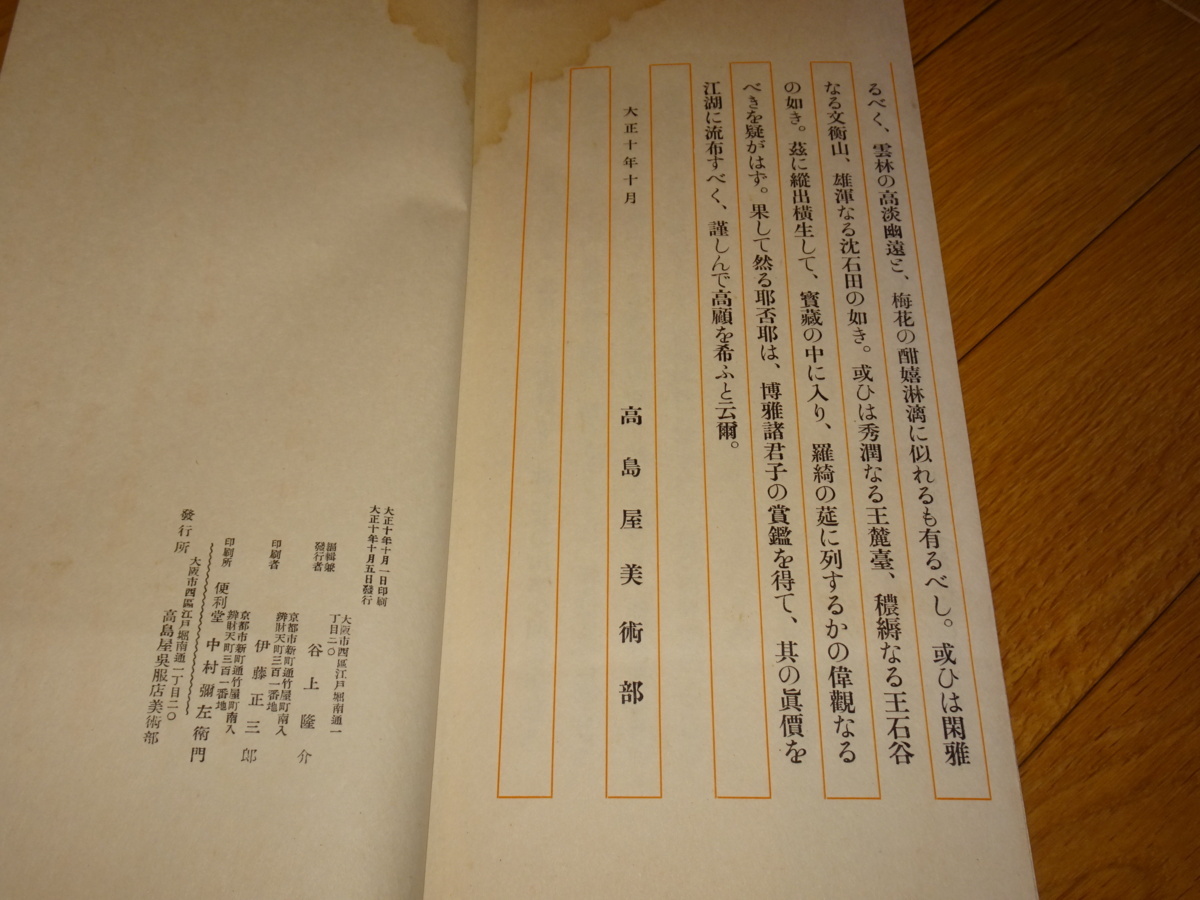 るべく、雲林の高淡幽遠と、梅花の酣嬉淋漓に似れるも有るべし。或ひは閑雅
なる文衡山、雄渾なる沈石田の如き。或ひは秀潤なる王麓臺、穠縟なる王石谷
の如き。茲に縱出橫生して、寳藏の中に入り、羅綺の莚に列するかの偉觀なる
べきを疑がはず。果して然る耶否耶は、博雅諸君子の賞鑑を得て、其の眞價を
江湖に流布すべく、謹しんで高顧を希ふと云爾。
大正十年十月
高島屋美術部
大正十年十月一日印刷
大正十年十月五日發行
編輯兼
發行者
大阪市西區江戸堀南通一
丁目二〇
谷上隆介
印刷者
京都市新町通竹屋町南入
辨財天町三百一番地
伊藤正三郎
印刷所
京都市新町通竹屋町南入
辨財天町三百一番地
便利堂 中村彌左衛門
發行所
大阪市西區江戸堀南通一丁目二〇
高島屋吳服店美術部